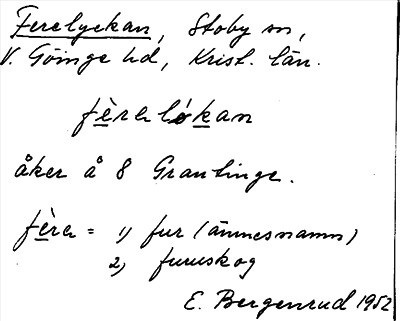 Ferelyckan, Stoby sn,
V. Göinge hd, Krist. län.
fèrelókan
åker å 8 Grantinge.
fère = 1) fur (ämnesnamn)
2) furuskog
E. Bergenrud 1952